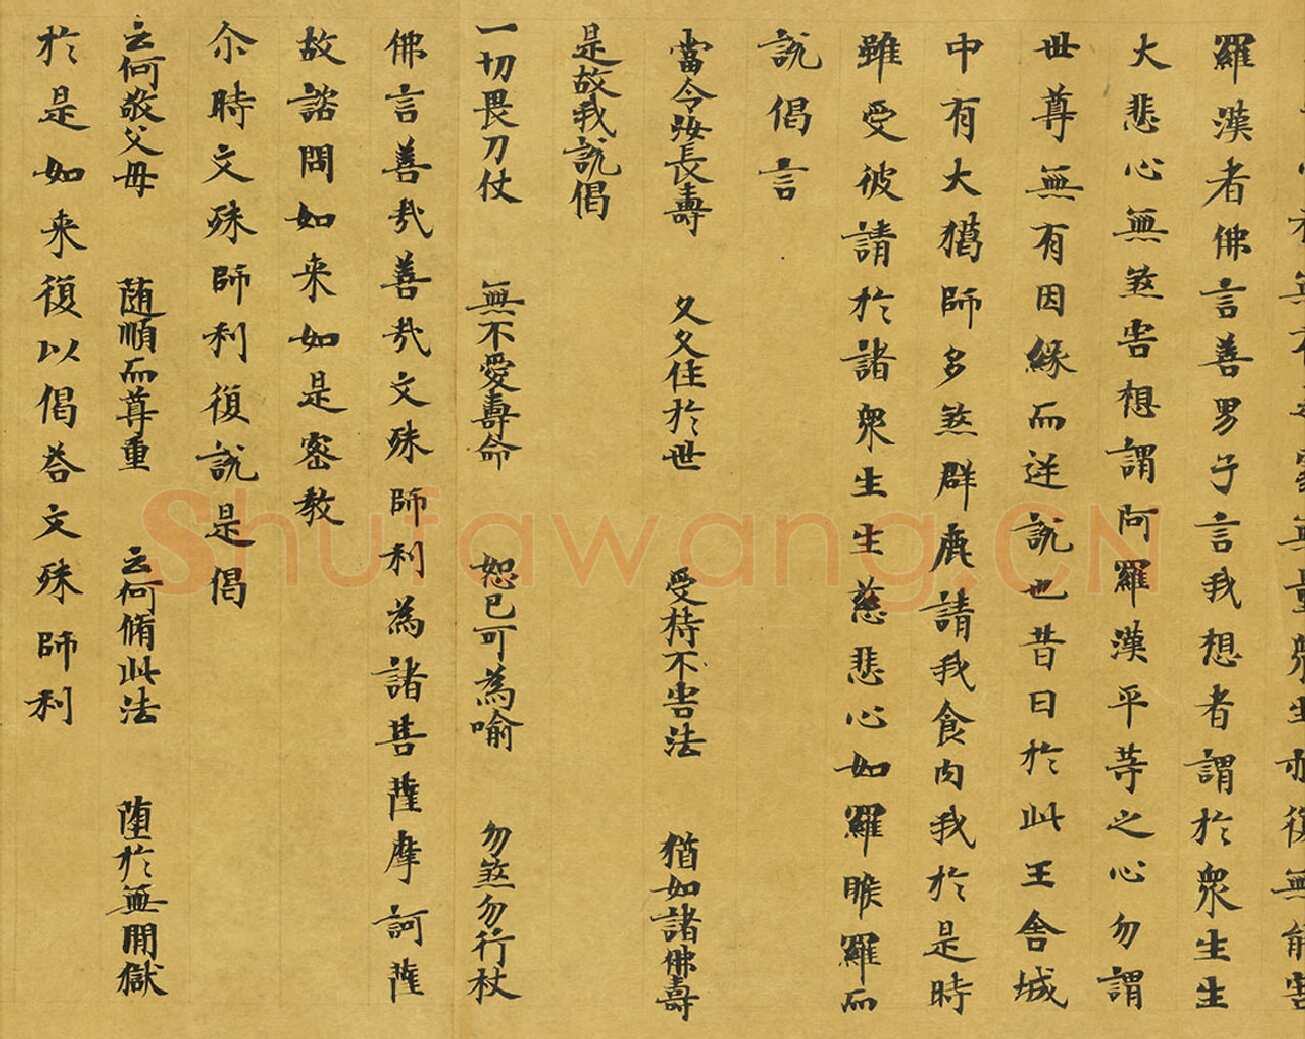 無量眾生亦復無能害
羅漢者佛言善男子言我想者謂於眾生生
大悲心無煞害想謂阿羅漢平等之心勿謂
世尊無有因緣而逆說也昔日於此王舍城
中有大獦師多煞群鹿請我食肉我於是時
雖受彼請於諸眾生生慈悲心如羅睺羅而
說偈言
當令汝長壽 久久住於世 受持不害法 猶如諸佛壽
是故我說偈
一切畏刀仗 無不愛壽命 恕己可為喻 勿煞勿行杖
佛言善哉善哉文殊師利為諸菩薩摩訶薩
故諮問如来如是密教
尒時文殊師利復說是偈
云何敬父母 随順而尊重 云何脩此法 墮於無間獄
於是如来復以偈荅文殊師利
Shufawang.CN